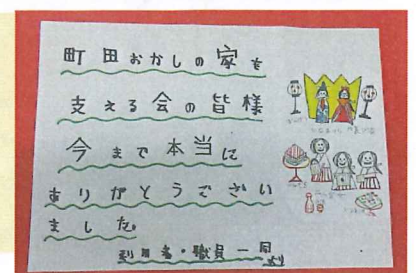 町田おかしの家を
支える会の皆様
今まで本当に
ありがとうござい
ました。
利用者・職員一同より